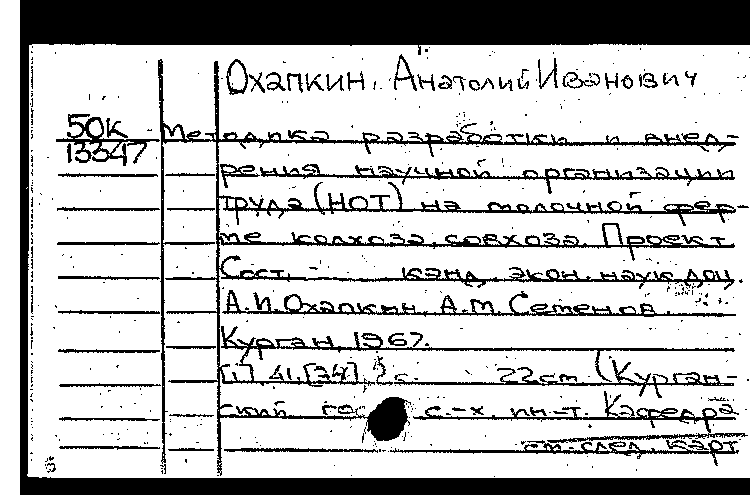 Охапкин, Анатолий Иванович
50К
13347
Методика разработки и внед-
рения научной организации
труда (НОТ) на молочной фер-
ме колхоза, совхоза. Проект
Сост. - канд. экон. наук доц.
А.И. Охапкин, А.М. Семенов.
Курган, 1967.
[1], 41, [34] с. 22 см (Курган-
ский гос. с.-х. ин-т. Кафедра
см. след. карт